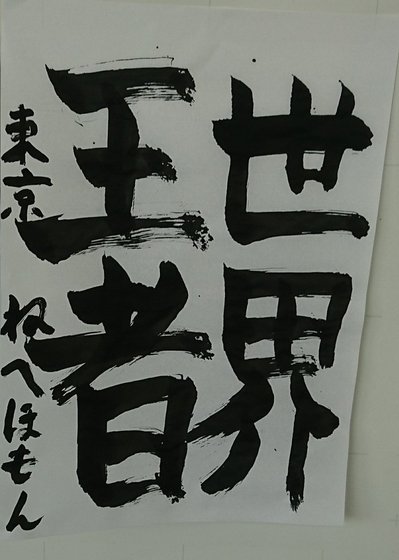 世界
王者
東京 ねへほもん